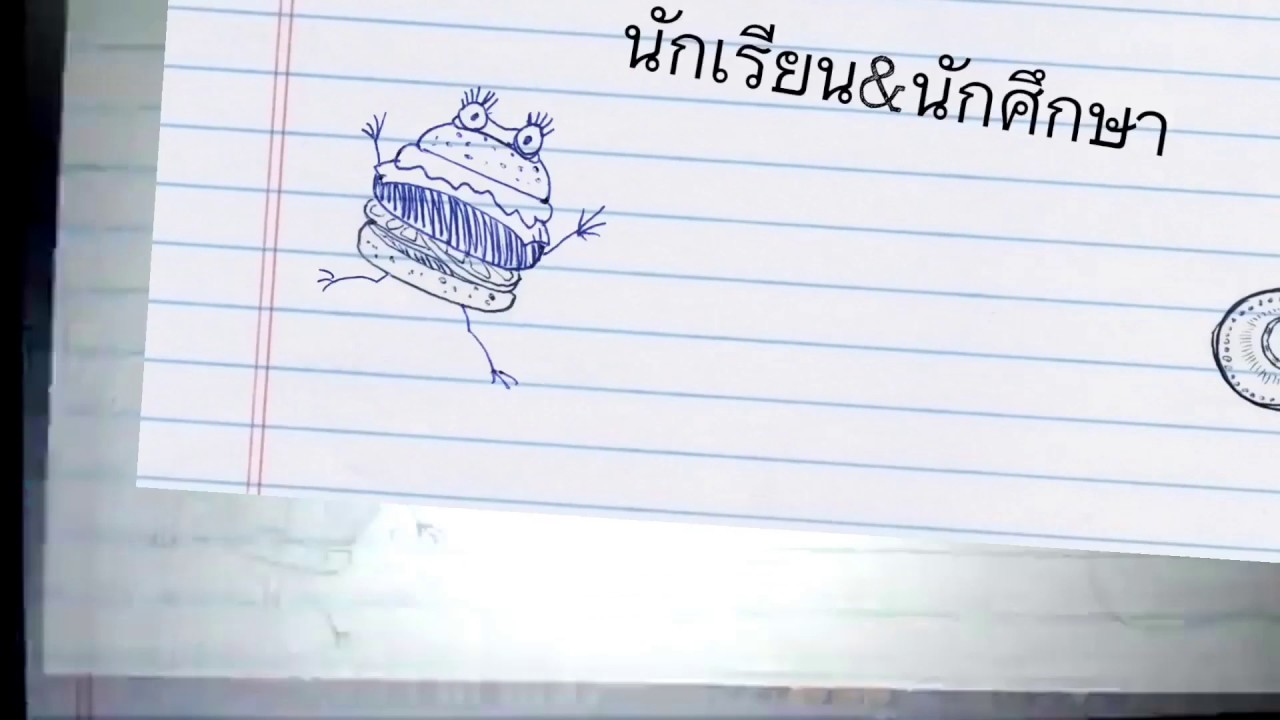 นักเรียน&นักศึกษา